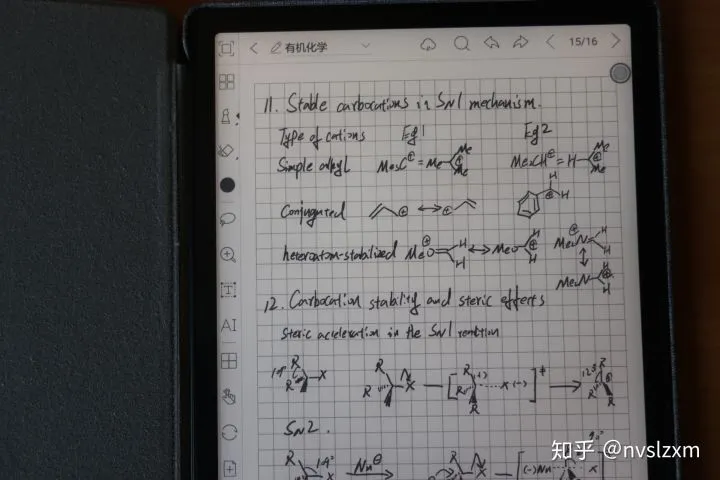 有机化学 15/16
11. Stable carbocations in SN1 mechanism.
Type of cations Eg1 Eg2
Simple alkyl Me3C⊕ = Me Me Me Me2CH⊕ = H Me Me
Conjugated ⊕ ↔ ⊕ H H
heteroatom-stabilized MeO⊕ H H ↔ MeO H H Me2N⊕ H H
Me2N H H
12. Carbocation stability and steric effects
Steric acceleration in the SN1 reaction
R R X R R X R R R (+) X (-) ‡ R R R
SN2.
R X Nu⊖ X (-)Nu X
AI
知乎 @nvslzxm